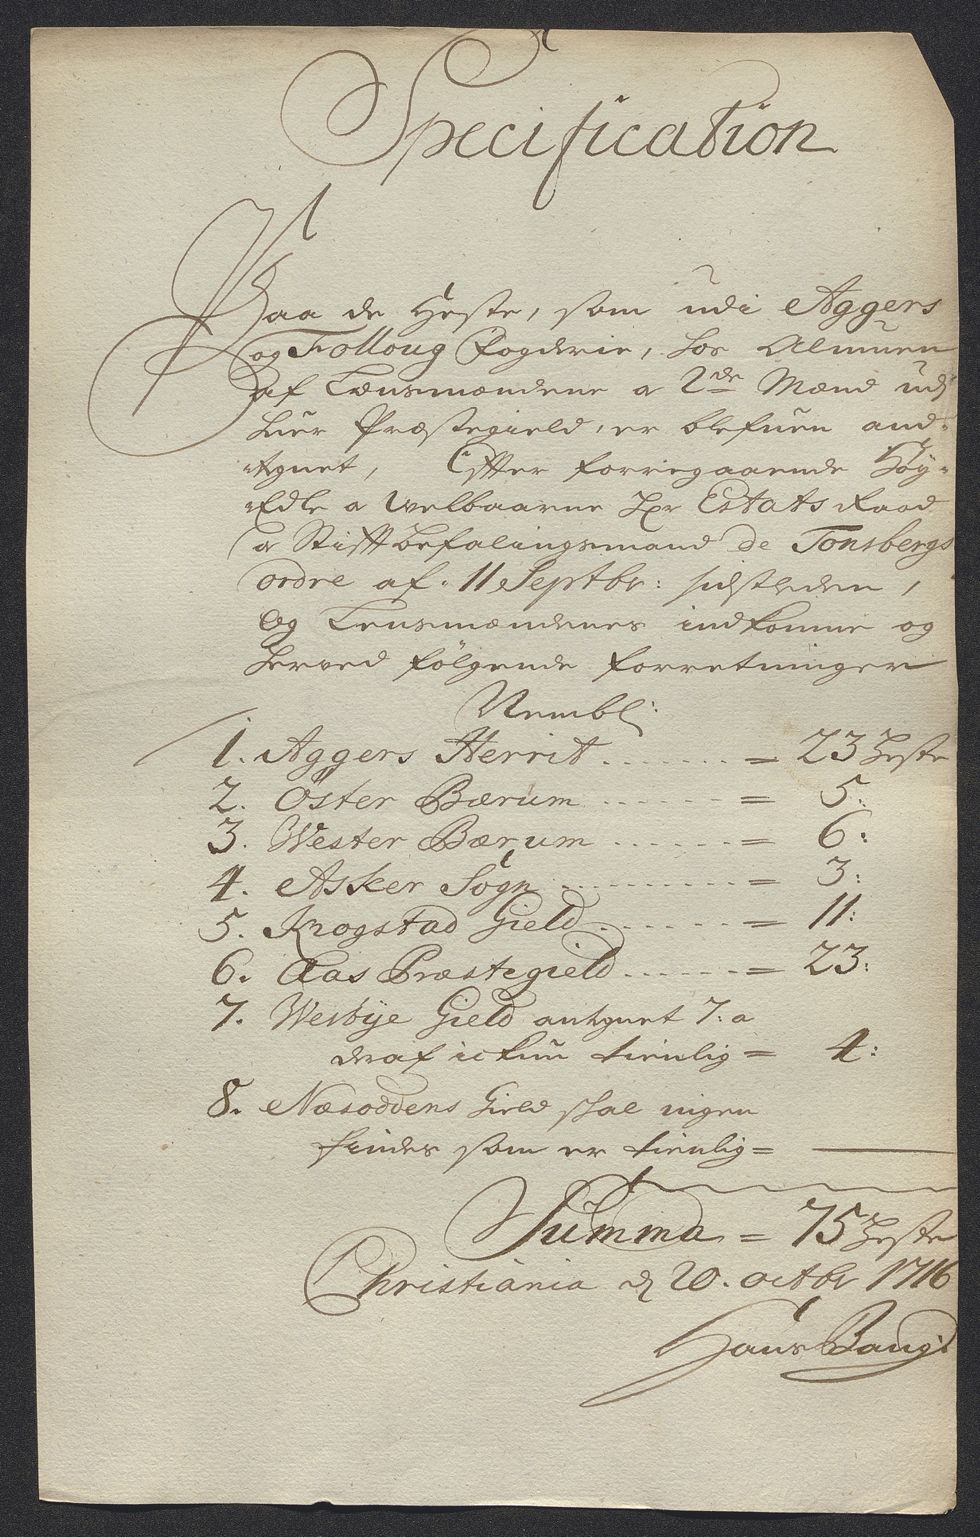 Specification
Paa de Heste, som udi Aggers
og Folloug Fogderie, hos Almuen
af Lensmændene a 2de Mænd udj
huer Præstegield, er blefuen and-
tegnet, Effter forregaaende Höy-
Edle a Welbaarne Hr Estats Raad
a Stifftbefalingsmand de Tonsbergs
ordre af 11 Septbr: sidstleden,
og Lensmændenes indkomne og
herved fölgende forretninger
Nembl:
1. Aggers Herrit ....... = 23 Heste
2. Öster Bærum ...... = 5:
3. Wester Bærum ...... = 6:
4. Asker Sogn ......... = 3:
5. Krogstad Gield ....... = 11:
6. Aas Præstegield ...... = 23:
7. Wesbye Gield antegnet 7: a
deraf ickun tienlig = 4:
8. Næsoddens Gield skal ingen
findes som er tienlig =
Summa = 75 Heste
Christiania d 20. octbr 1716
Hans Bang